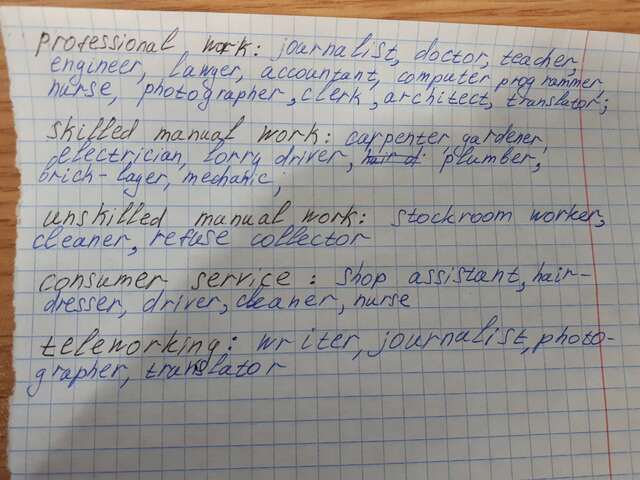 professional work: journalist, doctor, teacher,
engineer, lawyer, accountant, computer programmer,
nurse, photographer, clerk, architect, translator;
skilled manual work: carpenter, gardener,
electrician, lorry driver, plumber,
brich-layer, mechanic;
unskilled manual work: stockroom worker,
cleaner, refuse collector
consumer service: shop assistant, hair-
dresser, driver, cleaner, nurse
teleworking: writer, journalist, photo-
grapher, translator